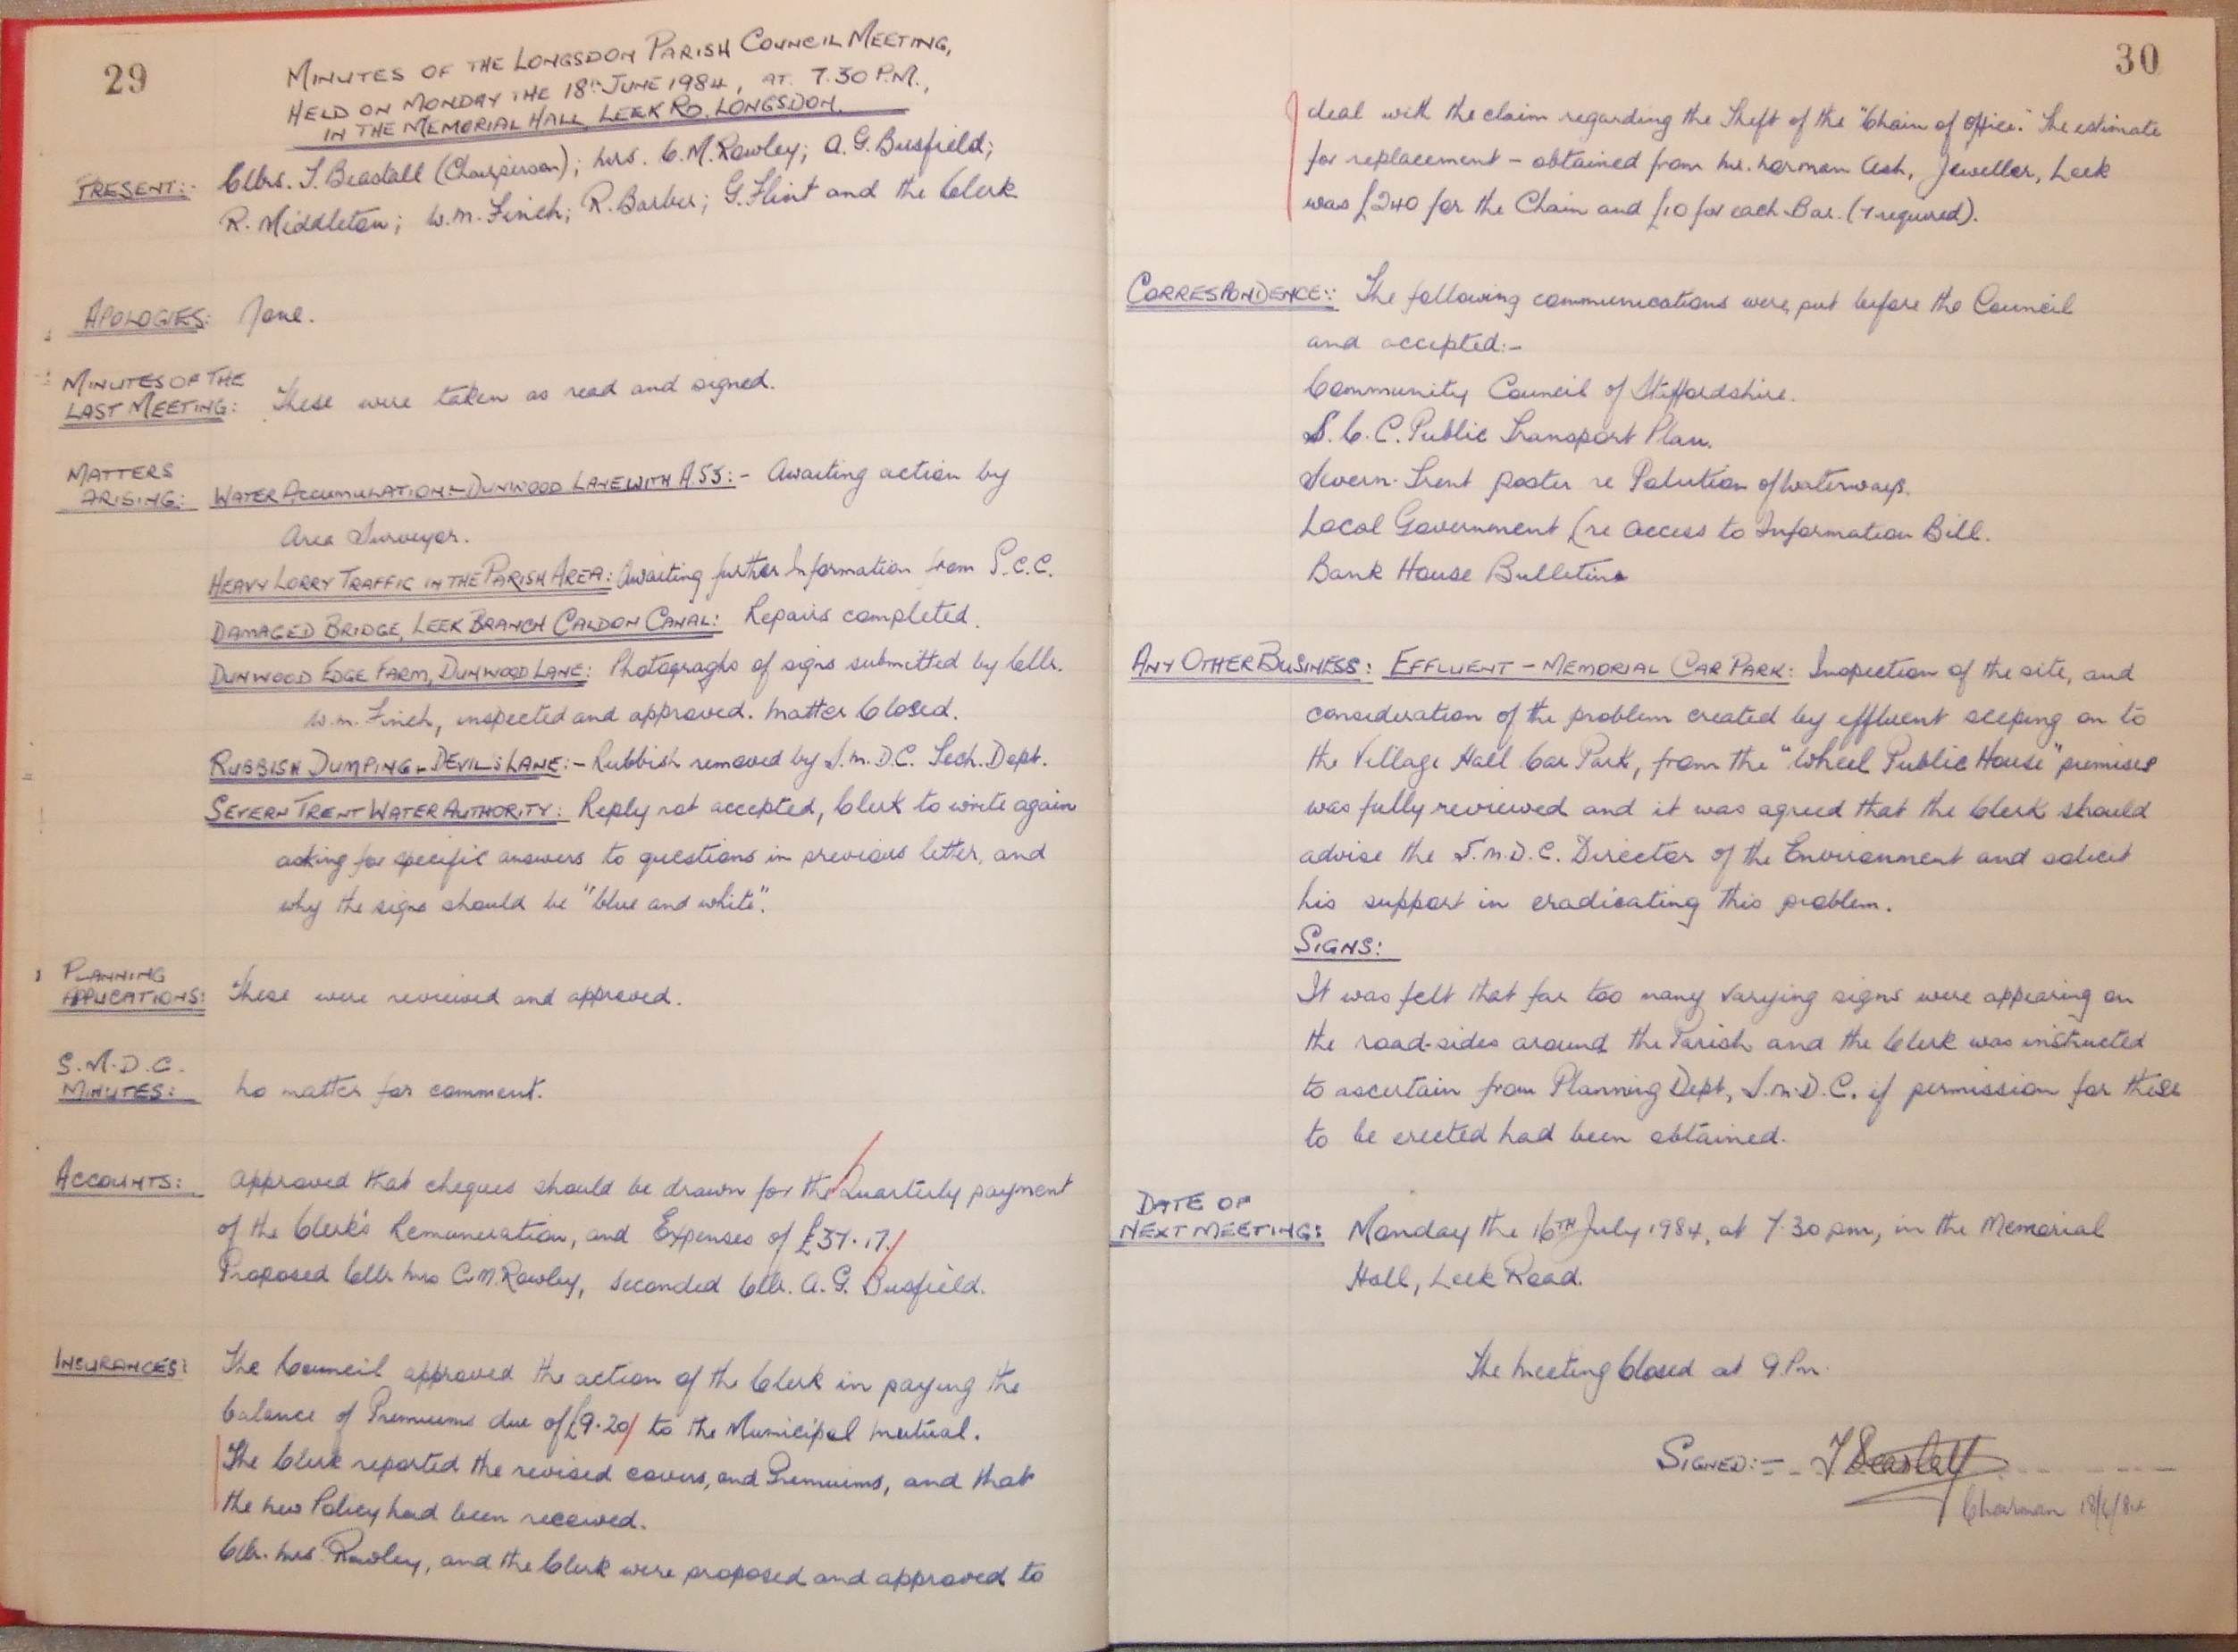 29
MINUTES OF THE LONGSDON PARISH COUNCIL MEETING,
HELD ON MONDAY THE 18th JUNE 1984, AT 7.30 P.M.,
IN THE MEMORIAL HALL, LEEK RD. LONGSDON.
PRESENT:- Cllrs. T. Beastall (Chairperson); Mrs. C. M. Rowley; A. G. Busfield;
R. Middleton; W. M. Finch; R. Barber; G. Flint and the Clerk
APOLOGIES: None.
MINUTES OF THE
LAST MEETING: These were taken as read and signed.
MATTERS
ARISING: WATER ACCUMULATION - DUNWOOD LANE WITH A.53:- Awaiting action by
Area Surveyor.
HEAVY LORRY TRAFFIC IN THE PARISH AREA: Awaiting further Information from S.C.C.
DAMAGED BRIDGE, LEEK BRANCH CALDON CANAL: Repairs completed.
DUNWOOD EDGE FARM, DUNWOOD LANE: Photographs of signs submitted by Cllr.
W.M. Finch, inspected and approved. Matter Closed.
RUBBISH DUMPING - DEVIL'S LANE:- Rubbish removed by S.M.D.C. Tech. Dept.
SEVERN TRENT WATER AUTHORITY: Reply not accepted, Clerk to write again
asking for specific answers to questions in previous letter, and
why the signs should be "blue and white".
PLANNING
APPLICATIONS: These were reviewed and approved.
S.M.D.C.
MINUTES: No matter for comment.
ACCOUNTS: Approved that cheques should be drawn for the Quarterly payment
of the Clerk's Remuneration, and Expenses of £37.17.
Proposed Cllr Mrs C.M. Rowley, Seconded Cllr. A. G. Busfield.
INSURANCES: The Council approved the action of the Clerk in paying the
balance of Premiums due of £9.20 to the Municipal Mutual.
The Clerk reported the revised covers, and Premiums, and that
the new Policy had been received.
Cllr. Mrs. Rowley, and the Clerk were proposed and approved to
30
deal with the claim regarding the Theft of the "Chain of Office". The estimate
for replacement - obtained from Mr. Norman Ash, Jeweller, Leek
was £240 for the Chain and £10 for each Bar. (7 required).
CORRESPONDENCE:: The following communications were put before the Council
and accepted:-
Community Council of Staffordshire.
S.C.C. Public Transport Plan.
Severn-Trent poster re Polution of Waterways.
Local Government (re access to Information Bill.
Bank House Bulletins
ANY OTHER BUSINESS: EFFLUENT - MEMORIAL CAR PARK: Inspection of the site, and
consideration of the problem created by effluent seeping on to
the Village Hall Car Park, from the "Wheel Public House" premises
was fully reviewed and it was agreed that the Clerk should
advise the S.M.D.C. Director of the Environment and solicit
his support in eradicating this problem.
SIGNS:
It was felt that far too many varying signs were appearing on
the road-sides around the Parish and the Clerk was instructed
to ascertain from Planning Dept, S.M.D.C. if permission for these
to be erected had been obtained.
DATE OF
NEXT MEETING: Monday the 16TH July 1984, at 7.30 pm, in the Memorial
Hall, Leek Road.
The Meeting Closed at 9 Pm.
SIGNED:- T Beastall
Chairman 18/6/84